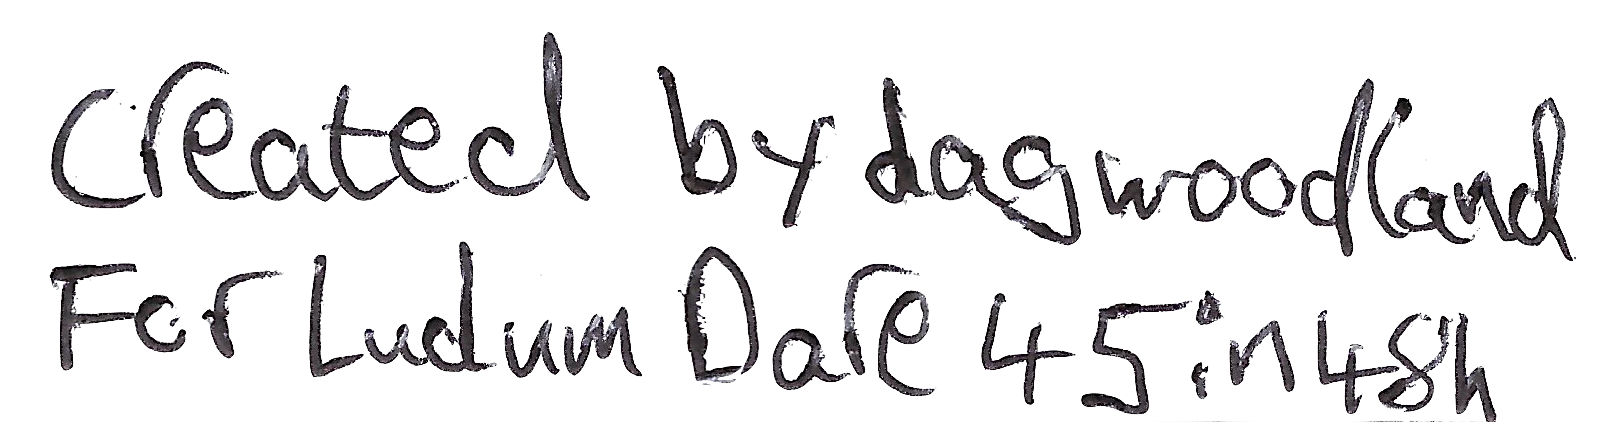 Created by dagwoodland
For Ludum Dare 45 in 48h